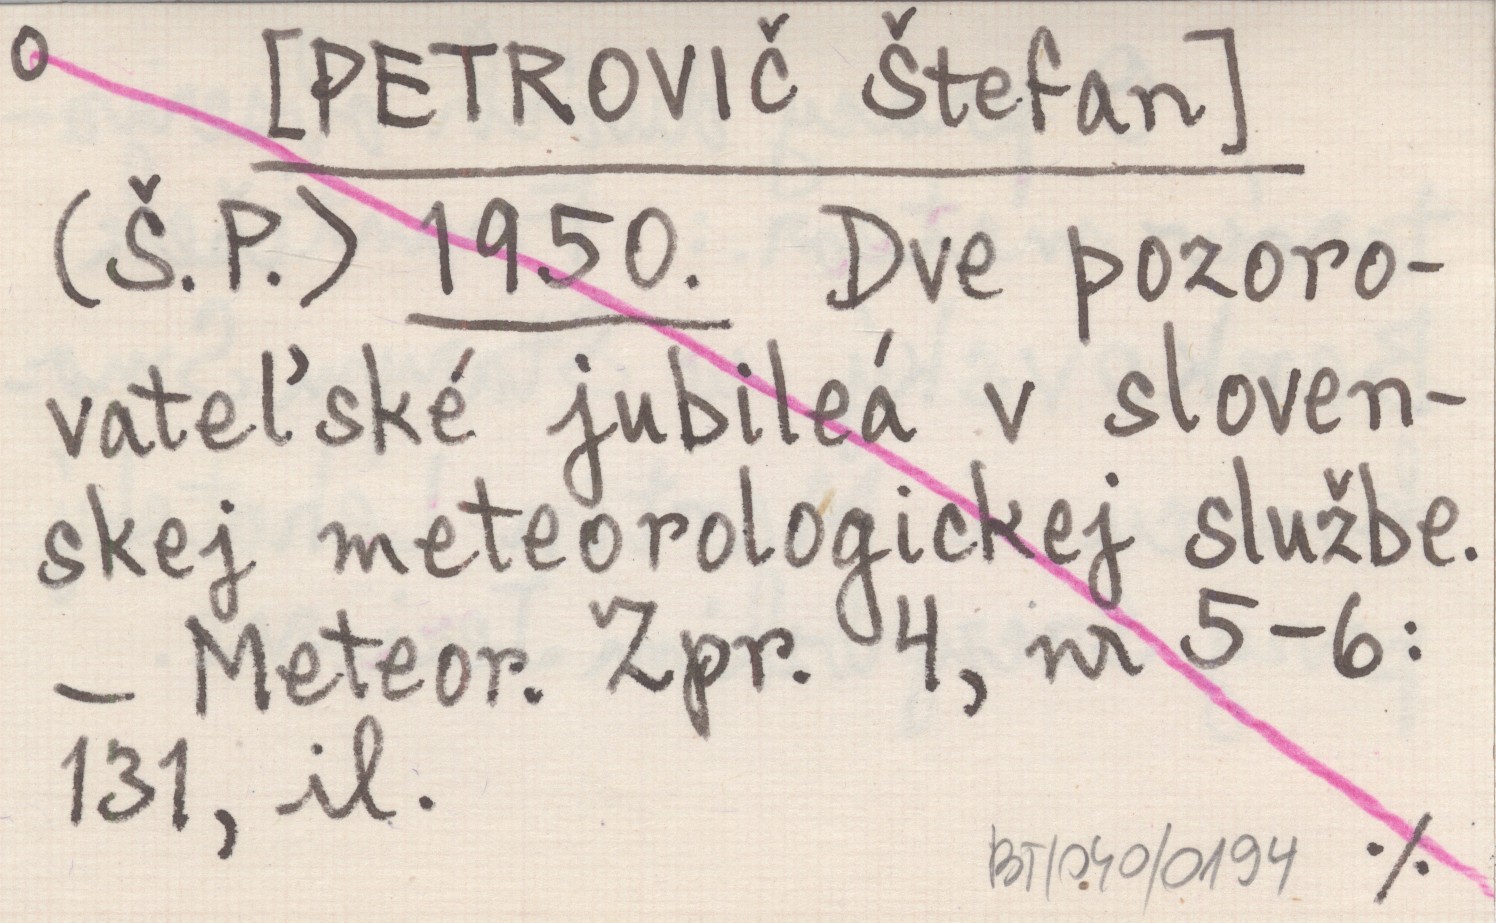 O [PETROVIČ Štefan]
(Š.P.) 1950. Dve pozoro-
vateľské jubileá v sloven-
skej meteorologickej službe.
– Meteor. Zpr. 4, nr 5-6:
131, il.
BT/040/0194 ·/.